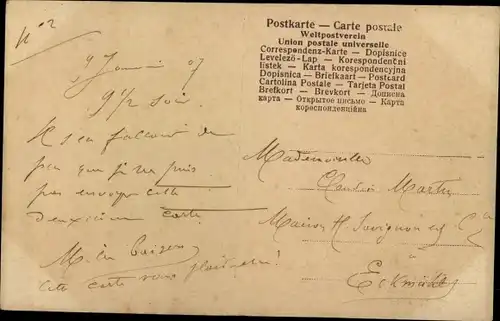 No 2
9 Janvier 07
9 1/2 soir.
Il s'en fallait de
peu que je ne puis
pas envoyer cette
deuxième carte
Mille baisers
cette carte vous plaira-t-elle!
Postkarte — Carte postale
Weltpostverein
Union postale universelle
Correspondenz-Karte — Dopisnice
Levelező-Lap — Korespondenční
lístek — Karta korespondencyjna
Dopisnica — Briefkaart — Postcard
Cartolina Postale — Tarjeta Postal
Brefkort — Brevkort — Дописна
карта — Открытое письмо — Карта
кореспонденційна
Mademoiselle
Martin
Maison H. Juvignon et Cie
à
Eckmühl